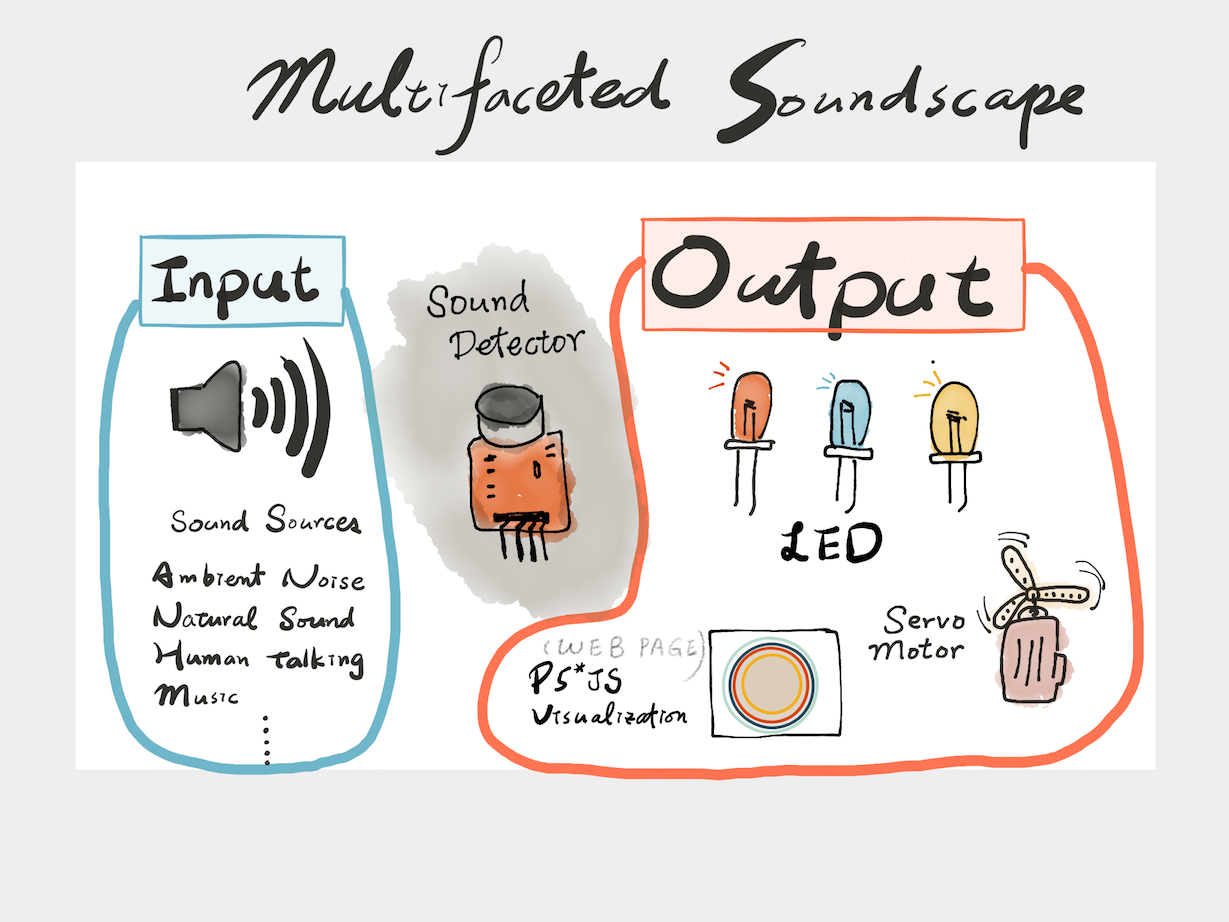 Multifaceted Soundscape
Input
Sound Sources
Ambient Noise
Natural Sound
Human Talking
Music
Sound
Detector
Output
LED
Servo
Motor
(WEB PAGE)
P5*JS
Visualization